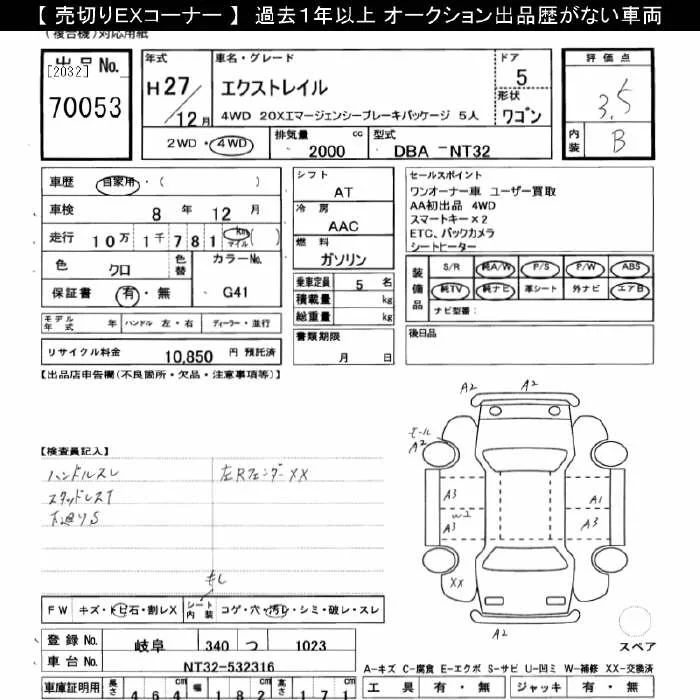 【 売切りEXコーナー 】 過去1年以上 オークション出品歴がない車両
(複合機)対応用紙
出品 No.
[2032]
70053
年式
H27/12月
車名・グレード
エクストレイル
4WD 20Xエマージェンシーブレーキパッケージ 5人
ドア
5
形状
ワゴン
2WD・4WD
排気量
2000 cc
型式
DBA -NT32
評価点
3.5
内装
B
車歴 自家用・( )
車検 8 年 12 月
走行 10万 1千 781 km マイル ( )
色 クロ
色替
カラーNo.
G41
保証書 有・無
モデル年式 年 ハンドル 左・右 ディーラー・並行
リサイクル料金 10,850 円 預託済
シフト
AT
冷房
AAC
燃料
ガソリン
乗車定員 5 名
積載量 kg
総重量 kg
書類期限
月 日
セールスポイント
ワンオーナー車 ユーザー買取
AA初出品 4WD
スマートキー×2
ETC、バックカメラ
シートヒーター
装備品
S/R 純A/W P/S P/W ABS
純TV 純ナビ 革シート 外ナビ エアB
ナビ型番：
後日品
【出品店申告欄(不良箇所・欠品・注意事項等)】
【検査員記入】
ハンドルスレ
スタッドレスT
下廻りS
左Rフェンダー XX
A2
A2
モール
A2
A3
A1
W2
A3
A3
XX
A2
スペア
FW キズ・トビ石・割レX
シート内装 コゲ・穴・汚レ・シミ・破レ・スレ
登録 No. 岐阜 340 つ 1023
車台 No. NT32-532316
車庫証明用 長さ 464 cm 幅 182 cm 高さ 171 cm
A-キズ C-腐食 E-エクボ S-サビ U-凹ミ W-補修 XX-交換済
工具 有・無 ジャッキ 有・無